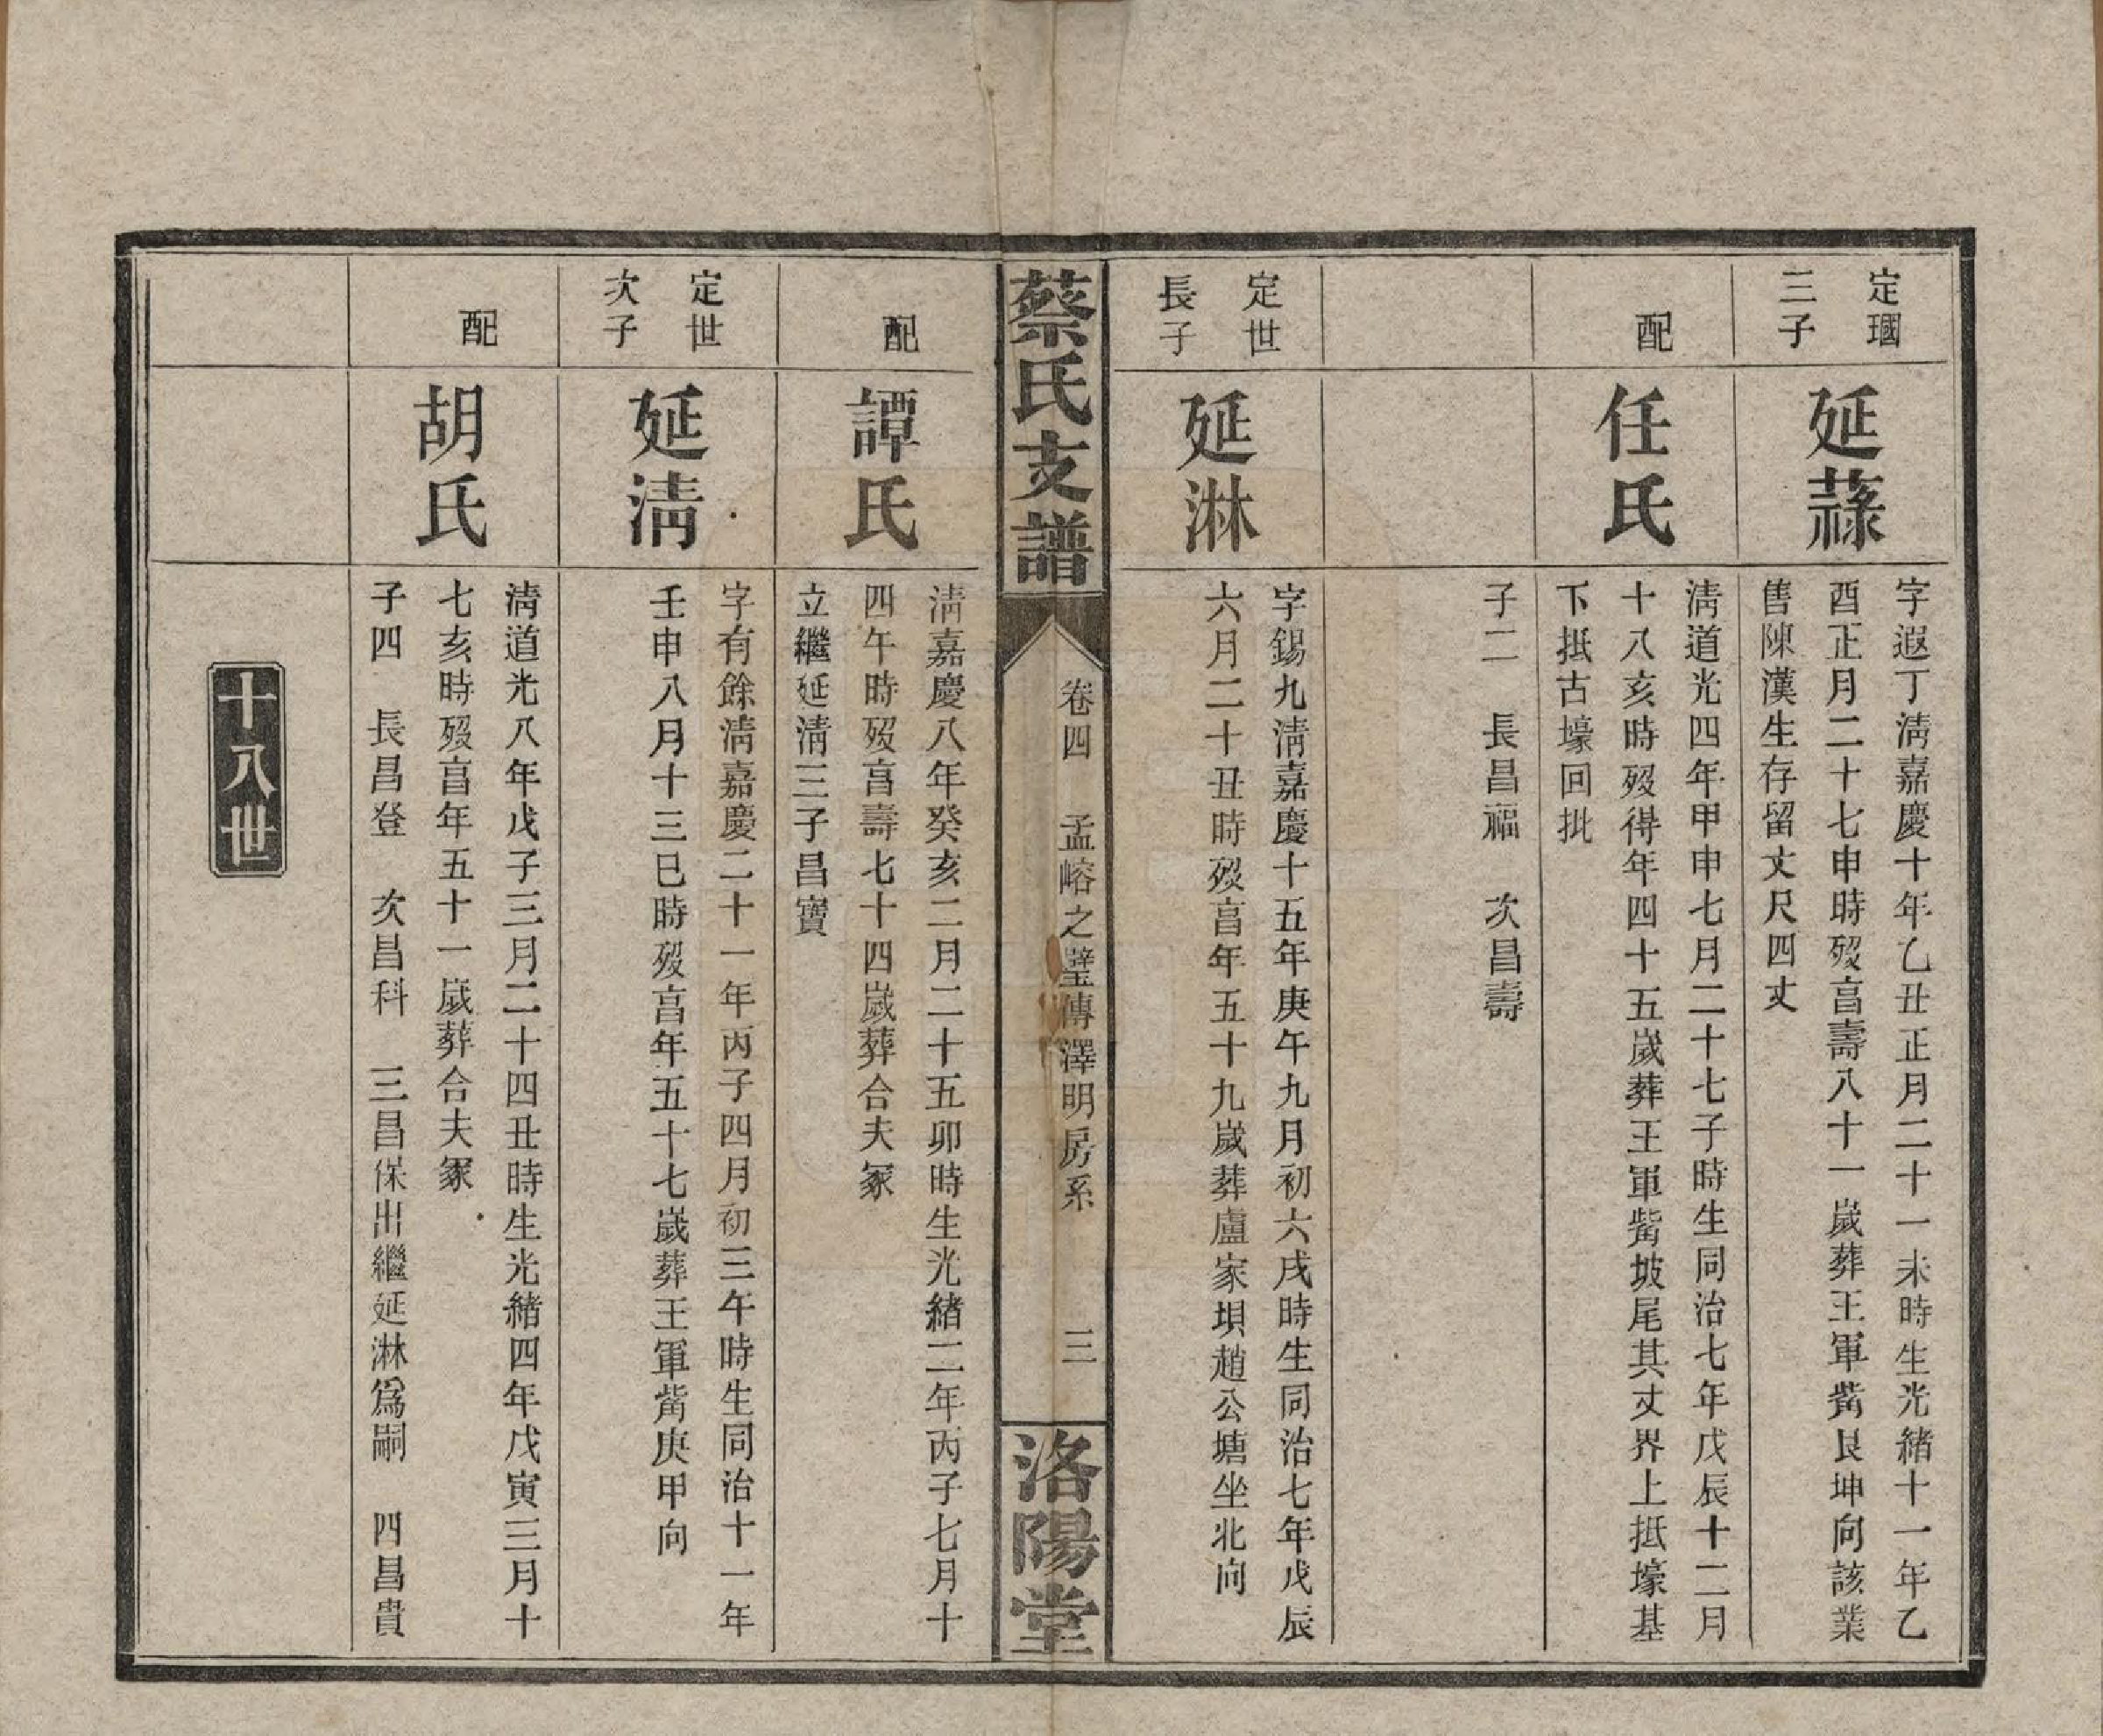 定瓁
三子
延蕬
字遐丁淸嘉慶十年乙丑正月二十一未時生光緒十一年乙
酉正月二十七申時歿亯壽八十一歲葬王軍觜艮坤向該業
售陳漢生存留丈尺四丈
配
任氏
淸道光四年甲申七月二十七子時生同治七年戊辰十二月
十八亥時歿得年四十五歲葬王軍觜坡尾其丈界上抵壕基
下抵古壕回批
子二　長昌福　次昌壽
定世
長子
延淋
字錫九淸嘉慶十五年庚午九月初六戌時生同治七年戊辰
六月二十丑時歿亯年五十九歲葬盧家垻趙公塘坐北向
蔡氏支譜
卷四　孟嵱之璧傳澤明房系　三
洛陽堂
配
譚氏
淸嘉慶八年癸亥二月二十五卯時生光緒二年丙子七月十
四午時歿亯壽七十四歲葬合夫冢
立繼延淸三子昌寶
定世
次子
延淸
字有餘淸嘉慶二十一年丙子四月初三午時生同治十一年
壬申八月十三巳時歿亯年五十七歲葬王軍觜庚甲向
配
胡氏
淸道光八年戊子三月二十四丑時生光緒四年戊寅三月十
七亥時歿亯年五十一歲葬合夫冢
子四　長昌登　次昌科　三昌保出繼延淋爲嗣　四昌貴
十八世